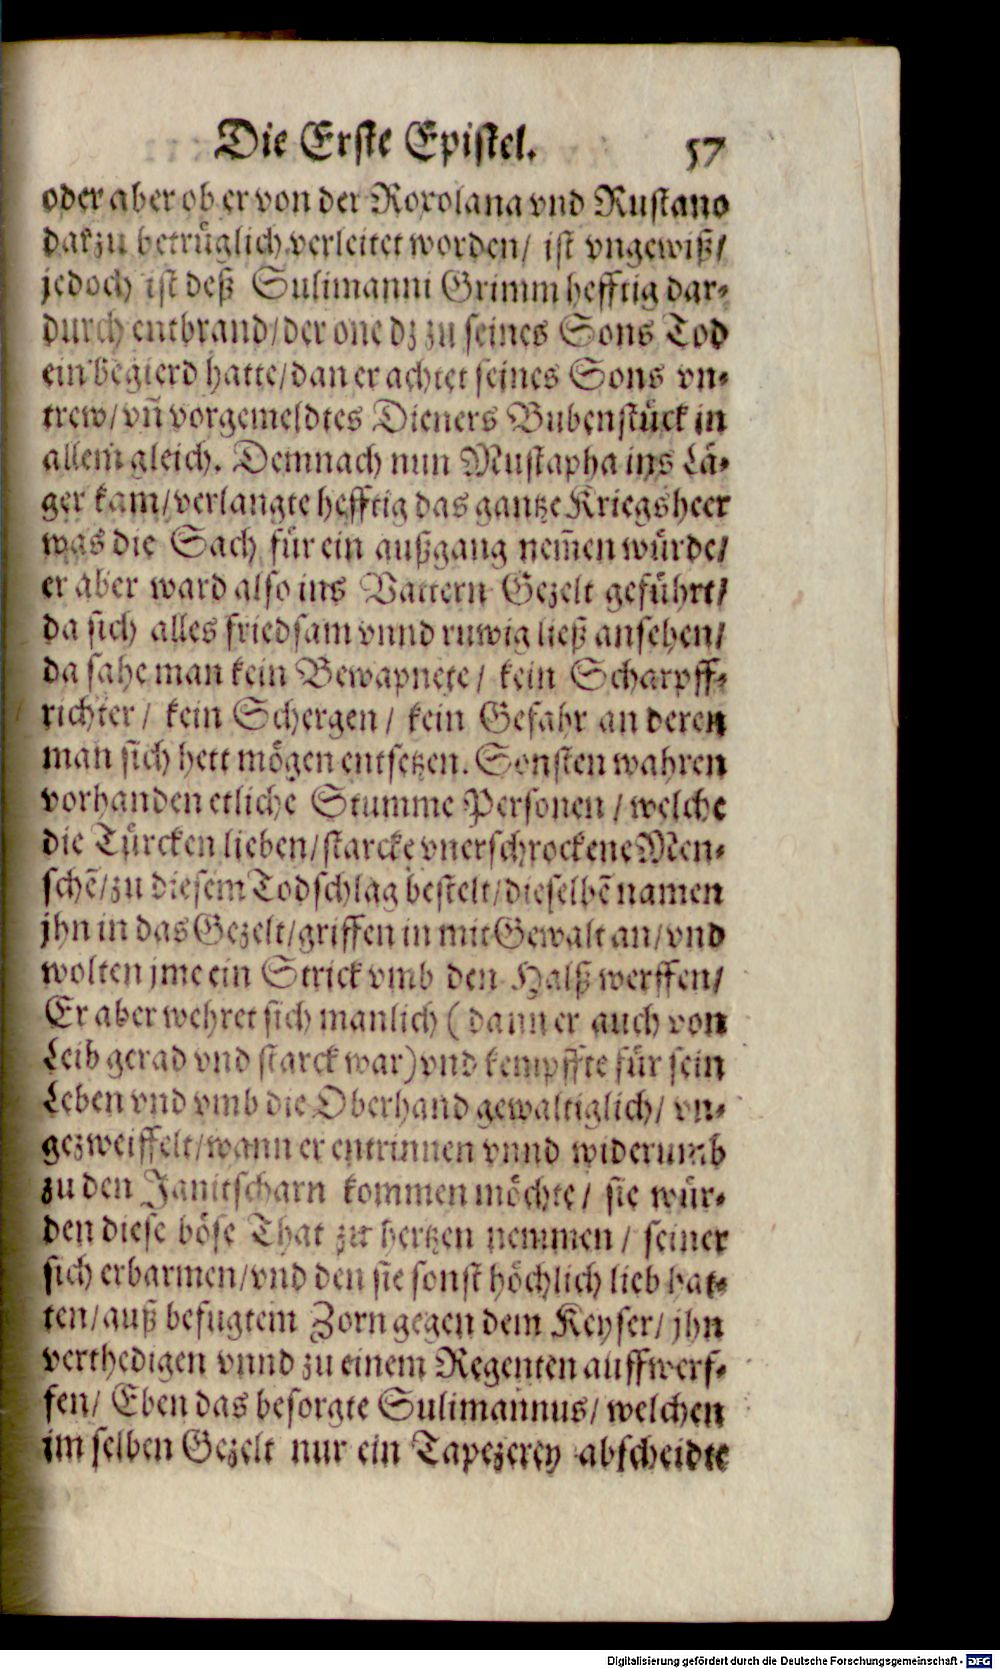 Die Erste Epistel. 57
oder aber ob er von der Roxolana vnd Rustano
darzu betrüglich verleitet worden/ ist vngewiß/
jedoch ist deß Sulimanni Grimm hefftig dar-
durch entbrand/der one dz zu seines Sons Tod
ein begierd hatte/dan er achtet seines Sons vn-
trew/vñ vorgemeldtes Dieners Bubenstück in
allem gleich. Demnach nun Mustapha ins Lä-
ger kam/verlangte hefftig das gantze Kriegsheer
was die Sach für ein außgang nem̃en würde/
er aber ward also ins Vattern Gezelt geführt/
da sich alles friedsam vnnd ruwig ließ ansehen/
da sahe man kein Bewapnete/ kein Scharpff-
richter/ kein Schergen/ kein Gefahr an deren
man sich hett mögen entsetzen. Sonsten wahren
vorhanden etliche Stumme Personen/welche
die Türcken lieben/starcke vnerschrockene Men-
schẽ/zu diesem Todschlag bestelt/dieselbẽ namen
jhn in das Gezelt/griffen in mit Gewalt an/vnd
wolten jme ein Strick vmb den Halß werffen/
Er aber wehret sich manlich (dann er auch von
Leib gerad vnd starck war) vnd kempffte für sein
Leben vnd vmb die Oberhand gewaltiglich/ vn-
gezweiffelt/wann er entrinnen vnnd widerumb
zu den Janitscharn kommen möchte/ sie wür-
den diese böse That zu hertzen nemmen/ seiner
sich erbarmen/vnd den sie sonst höchlich lieb hat-
ten/auß befugtem Zorn gegen dem Keyser/ jhn
verthedigen vnnd zu einem Regenten auffwerf-
fen/ Eben das besorgte Sulimannus/ welchen
im selben Gezelt nur ein Tapezerey abscheidte
Digitalisierung gefördert durch die Deutsche Forschungsgemeinschaft - DFG